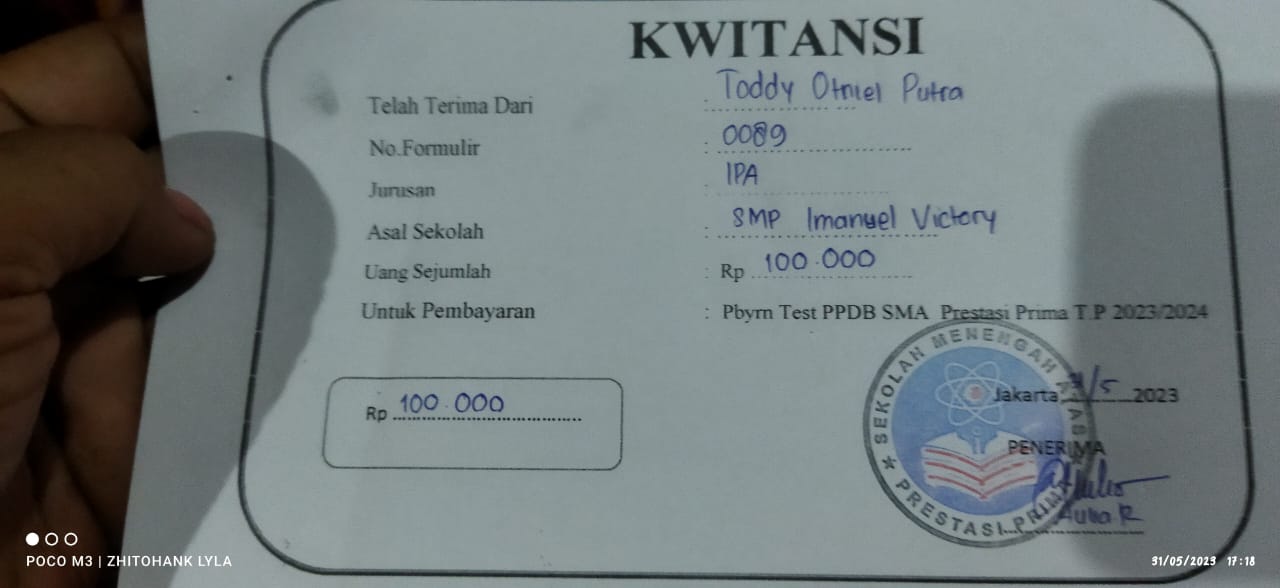 KWITANSI
Telah Terima Dari : Toddy Otniel Putra
No.Formulir : 0089
Jurusan : IPA
Asal Sekolah : SMP Imanuel Victory
Uang Sejumlah : Rp 100.000
Untuk Pembayaran : Pbyrn Test PPDB SMA Prestasi Prima T.P 2023/2024
SEKOLAH MENENGAH ATAS
★ PRESTASI PRIMA
Jakarta, /5 2023
Rp 100.000
PENERIMA
Aulia R
POCO M3 | ZHITOHANK LYLA
31/05/2023 17:18